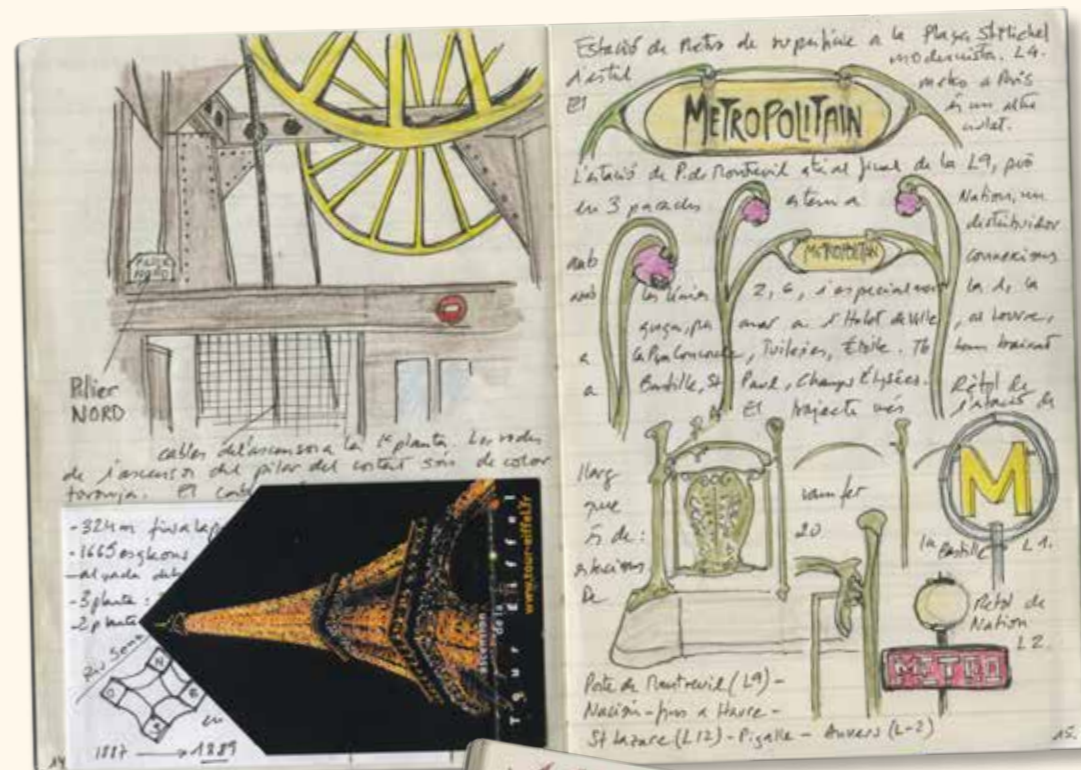 PILIER
NORD
Pilier
NORD
cables de l'ascensor a la 1ª planta. Les rodes
de l'ascensor del pilar del costat són de color
taronja. El
-324 m fins a la
-1665 esglaons
-alçada del
-3 planta:
-2 planta
Riu Sena
en
1887 → 1889
ascension
de la
Tour Eiffel
www.tour-eiffel.fr
14
Estació de Metro de superfície a la Plaça St Michel
d'estil modernista. L4.
El METROPOLITAIN metro a París
és un altre
L'estació de P. de Montreuil està al final de la L9, però
en 3 parades estem a Nation, un
distribuidor
amb METROPOLITAIN connexions
amb les línies 2, 6, i especialment la de la
groga, per anar a l'Hotel de Ville, al Louvre,
a la Pza Concorde, Tuileries, Étoile. Tb hem baixat
a Bastille, St Paul, Champs Élysées. Rètol de
El trajecte més l'estació de
llarg
que vam fer M
és de: 20 la Bastille L1.
estacions
De Rètol de
Nation
L2.
METRO
Pte de Montreuil (L9) -
Nation - fins a Havre -
St Lazare (L12) - Pigalle - Anvers (L-2)
15.